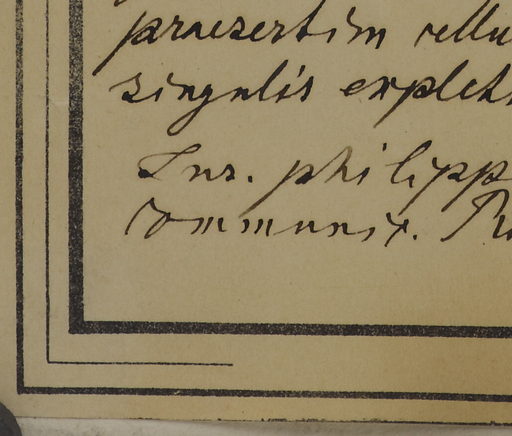 praesertim vellu
singulis explet
Ins. philipp
communis.